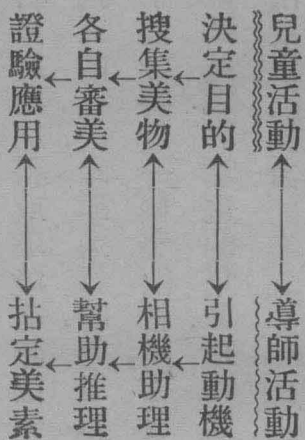 兒童活動
導師活動
決定目的
引起動機
搜集美物
相機助理
各自審美
幫助推理
證驗應用
拈定美素